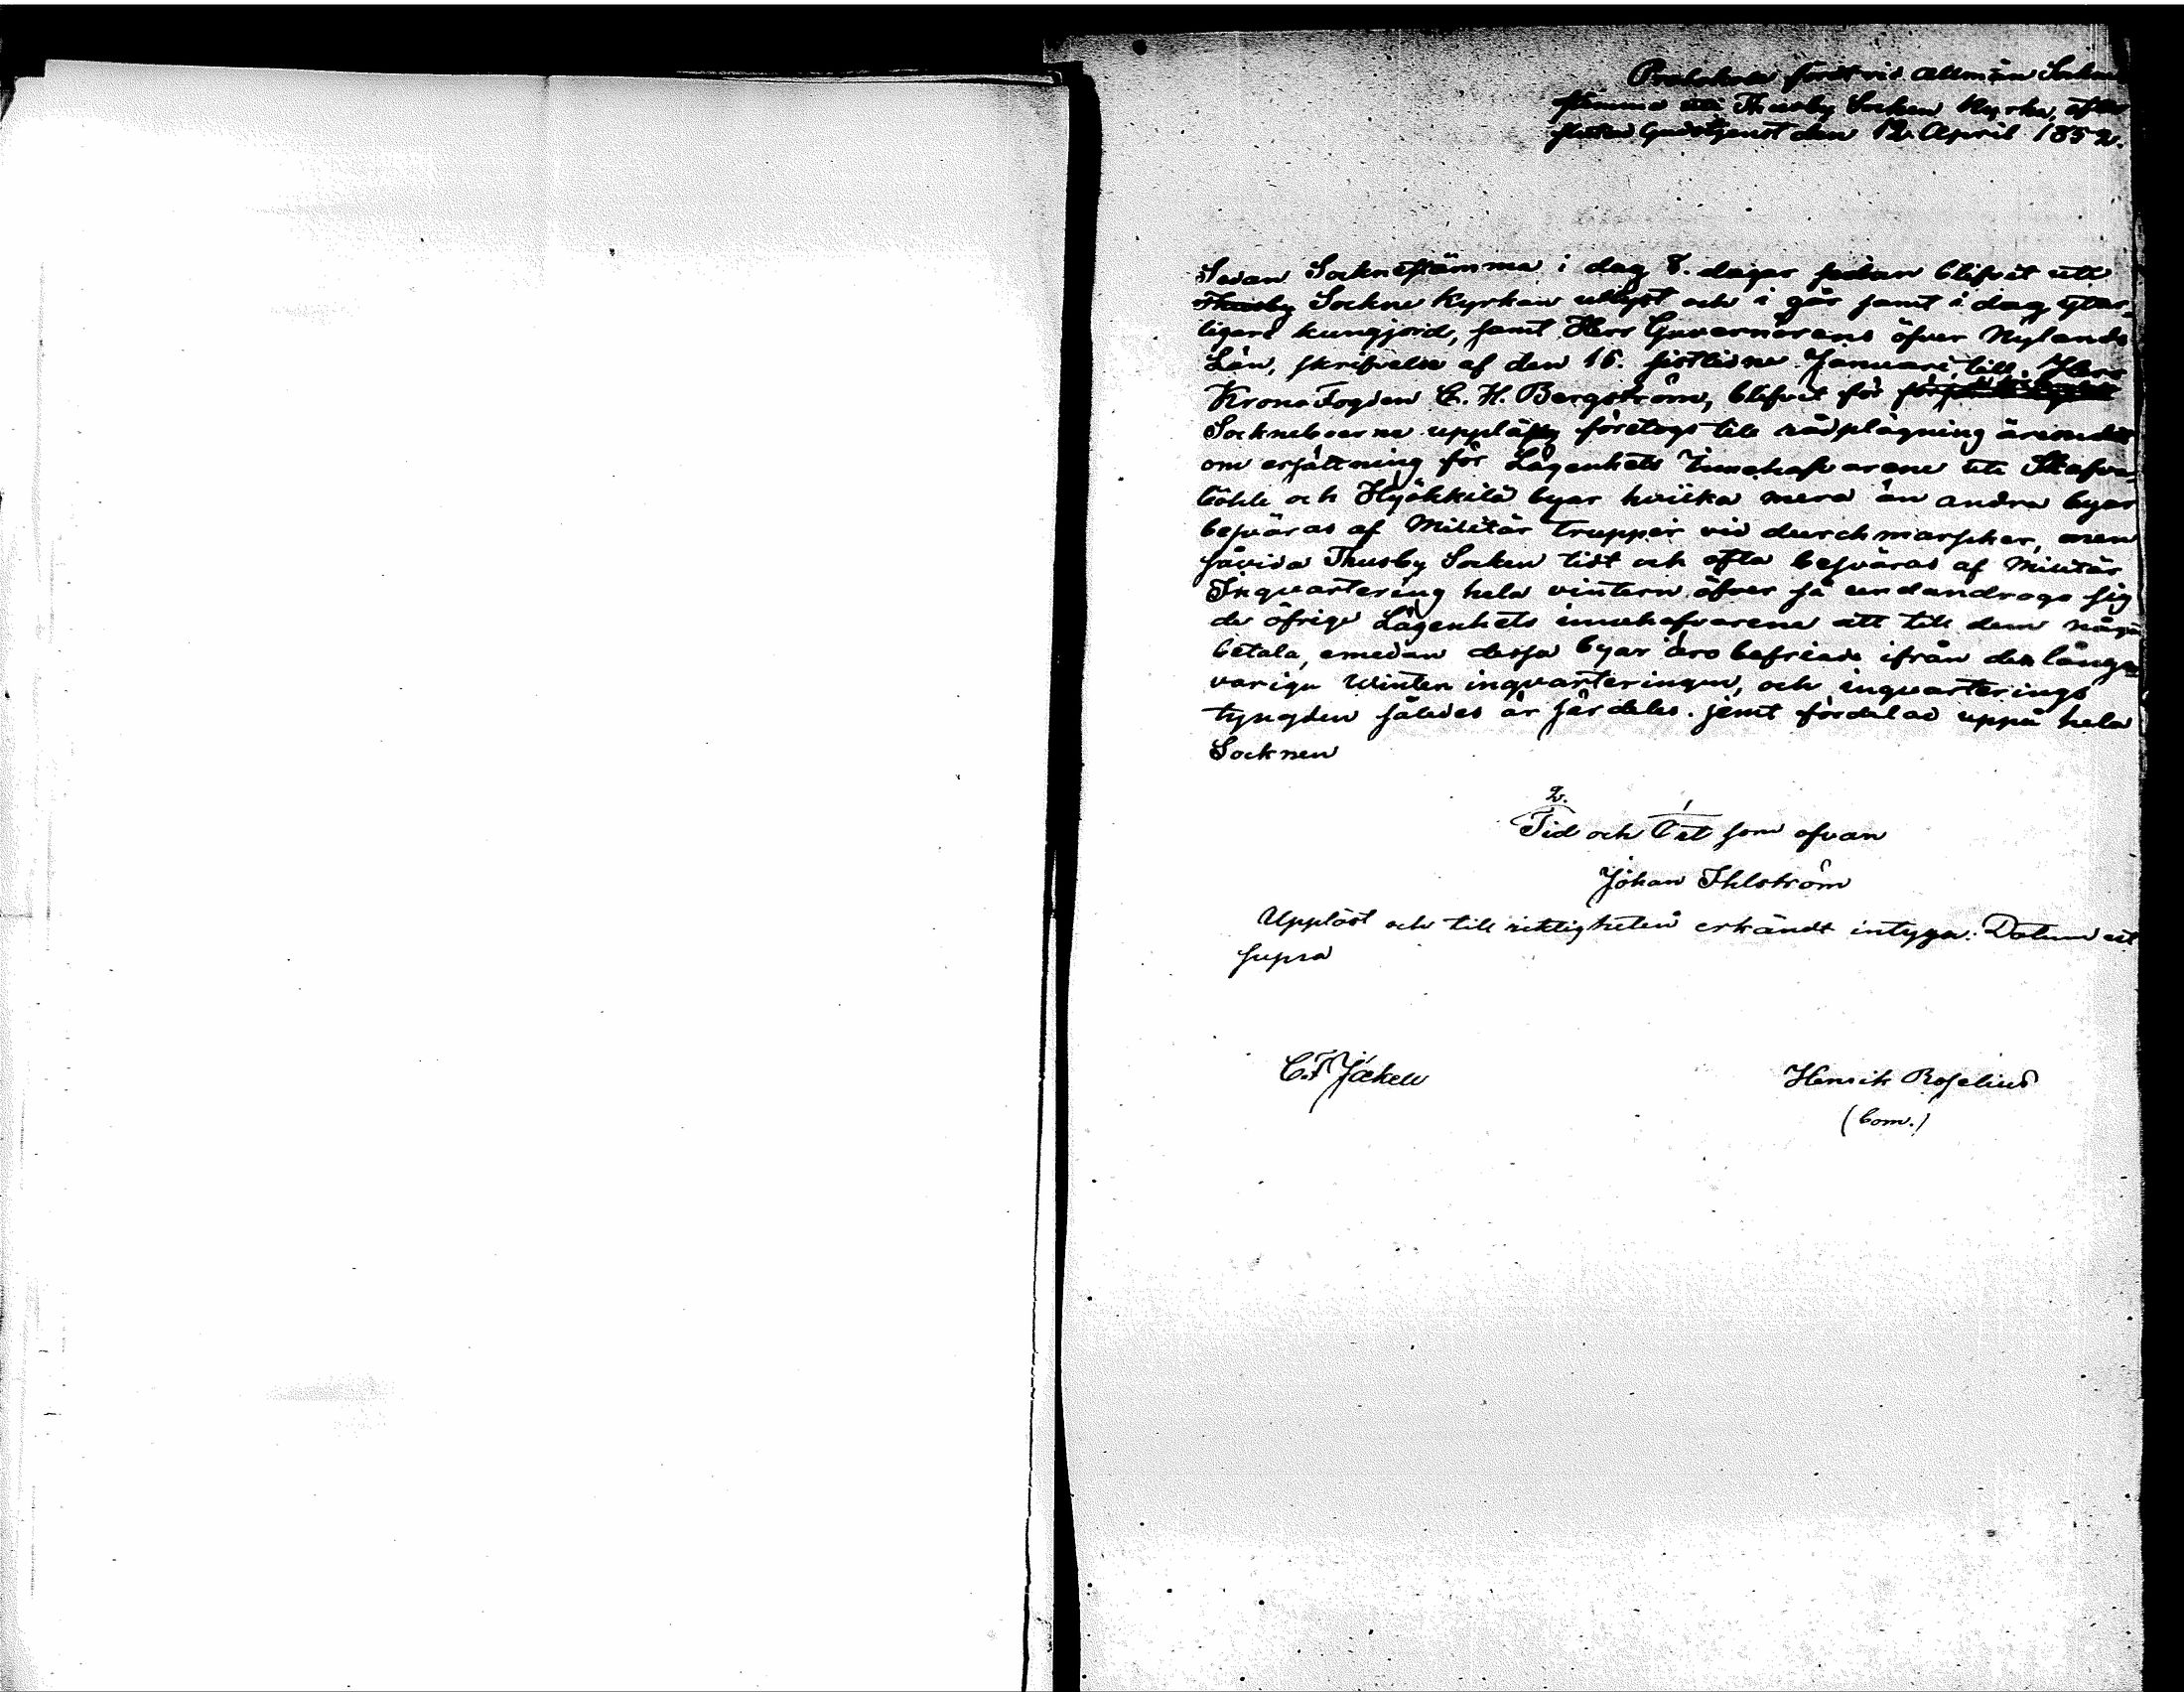 Protokoll fördt vid allmän Sockne
stämma uti Thusby Socken Kyrka, efter
slutad Gudstjenst den 12 April 1852.
Sedan Socknestämma i dag 8. dagar sedan blifvit uti
Thusby Sockne Kyrkan utlyst och i går samt i dag ytter-
ligare kungjord, samt Herr Guvernörens öfver Nylands
Län, skrifvelse af den 16. sistlidne Januari, till Herr
KronoFogden C. H. Bergström, blifvit för
Sockneboerne uppläst, företogs till rådplägning ärendet
om ersättning för Lägenhets Innehafvarene uti Skafva-
böhle och Hyökkilä byar hvilka mera än andra byar
besväras af Militär trupper vid durchmarscher, men
såvida Thusby Socken tidt och ofta besväras af Militär
Inqvartering hela vintern öfver så undandrogo sig
de öfrige Lägenhets innehafvarene att till dem något
betala, emedan dessa byar äro befriade ifrån den lång-
variga Winter inqvarteringen, och inqvarterings
tyngden således är särdeles jemt fördelad uppå hela
Socknen
2. 1
Tid och Ort som ofvan
Johan Ihlström
Uppläst och till riktigheten erkändt intyga: Datum ut
supra
C. F. Jäkell Henrik Roselius
(Com.)